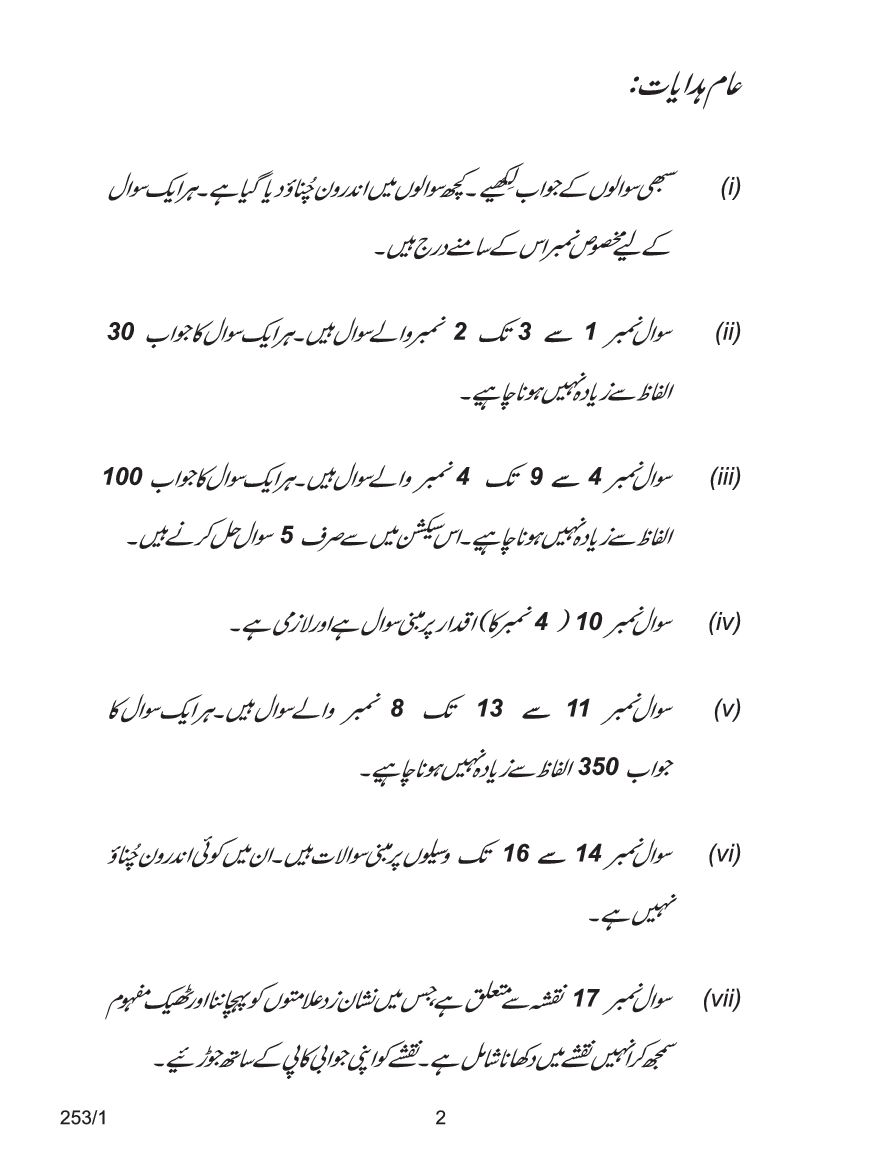 عام ہدایات:
(i) سبھی سوالوں کے جواب لِکھیے ۔ کچھ سوالوں میں اندرون چُناؤ دیا گیا ہے ۔ ہر ایک سوال
کے لیے مخصوص نمبر اس کے سامنے درج ہیں ۔
(ii) سوال نمبر 1 سے 3 تک 2 نمبر والے سوال ہیں ۔ ہر ایک سوال کا جواب 30
الفاظ سے زیادہ نہیں ہونا چاہیے ۔
(iii) سوال نمبر 4 سے 9 تک 4 نمبر والے سوال ہیں ۔ ہر ایک سوال کا جواب 100
الفاظ سے زیادہ نہیں ہونا چاہیے ۔ اس سیکشن میں سے صرف 5 سوال حل کرنے ہیں ۔
(iv) سوال نمبر 10 ( 4 نمبر کا) اقدار پر مبنی سوال ہے اور لازمی ہے ۔
(v) سوال نمبر 11 سے 13 تک 8 نمبر والے سوال ہیں ۔ ہر ایک سوال کا
جواب 350 الفاظ سے زیادہ نہیں ہونا چاہیے ۔
(vi) سوال نمبر 14 سے 16 تک وسیلوں پر مبنی سوالات ہیں ۔ ان میں کوئی اندرون چُناؤ
نہیں ہے ۔
(vii) سوال نمبر 17 نقشہ سے متعلق ہے، جس میں نشان زد علامتوں کو پہچاننا اور ٹھیک مفہوم
سمجھ کر انہیں نقشے میں دکھانا شامل ہے ۔ نقشے کو اپنی جوابی کاپی کے ساتھ جوڑئیے ۔
253/1 2